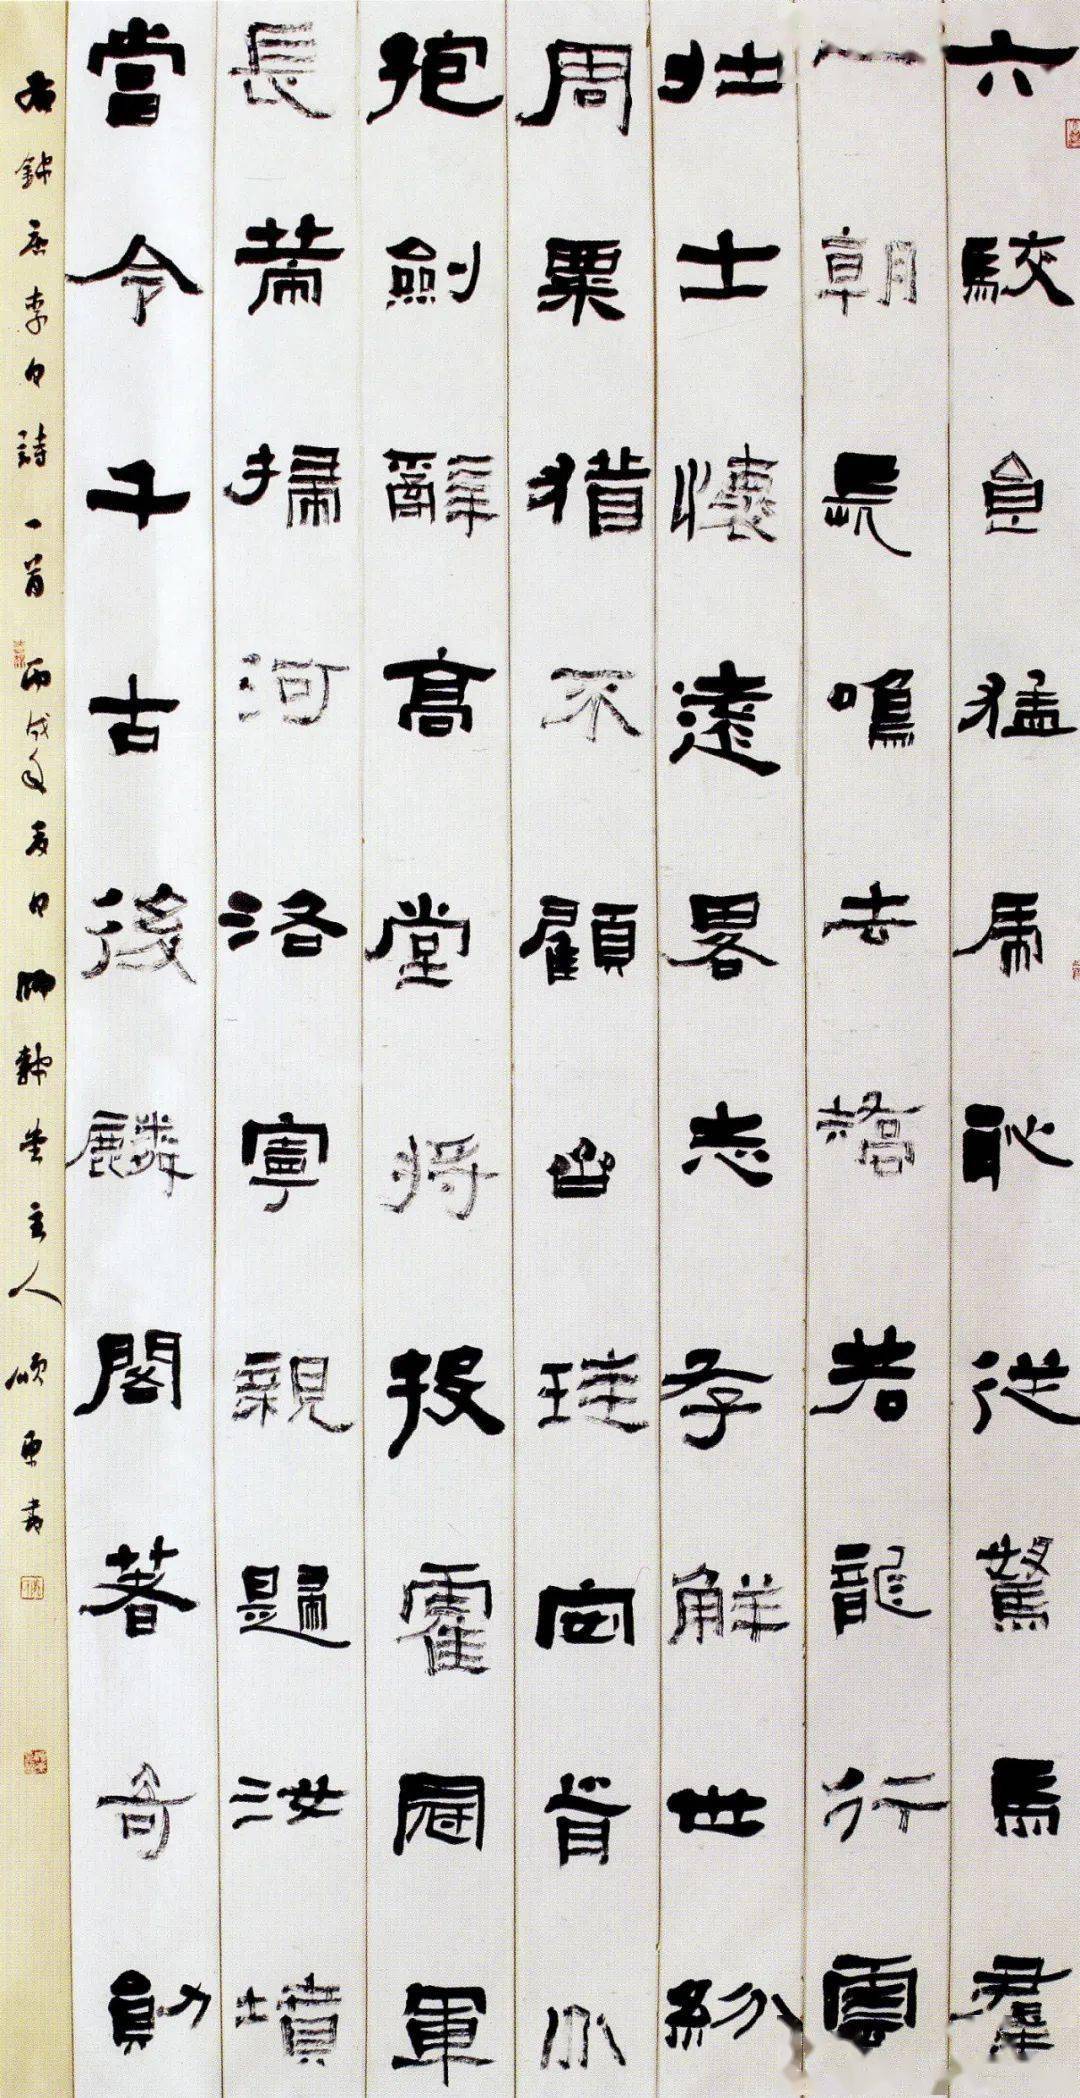 六駮食猛虎恥從驚馬羣
一朝長鳴去矯若龍行雲
壯士懷遠畧志存解世紛
周粟猶不顧齊珪安肯分
抱劍辭高堂將投霍冠軍
長策掃河洛寧親歸汝墳
當令千古後麟閣著奇勛
右錄唐李白詩一首丙戌年夏日堂主人書